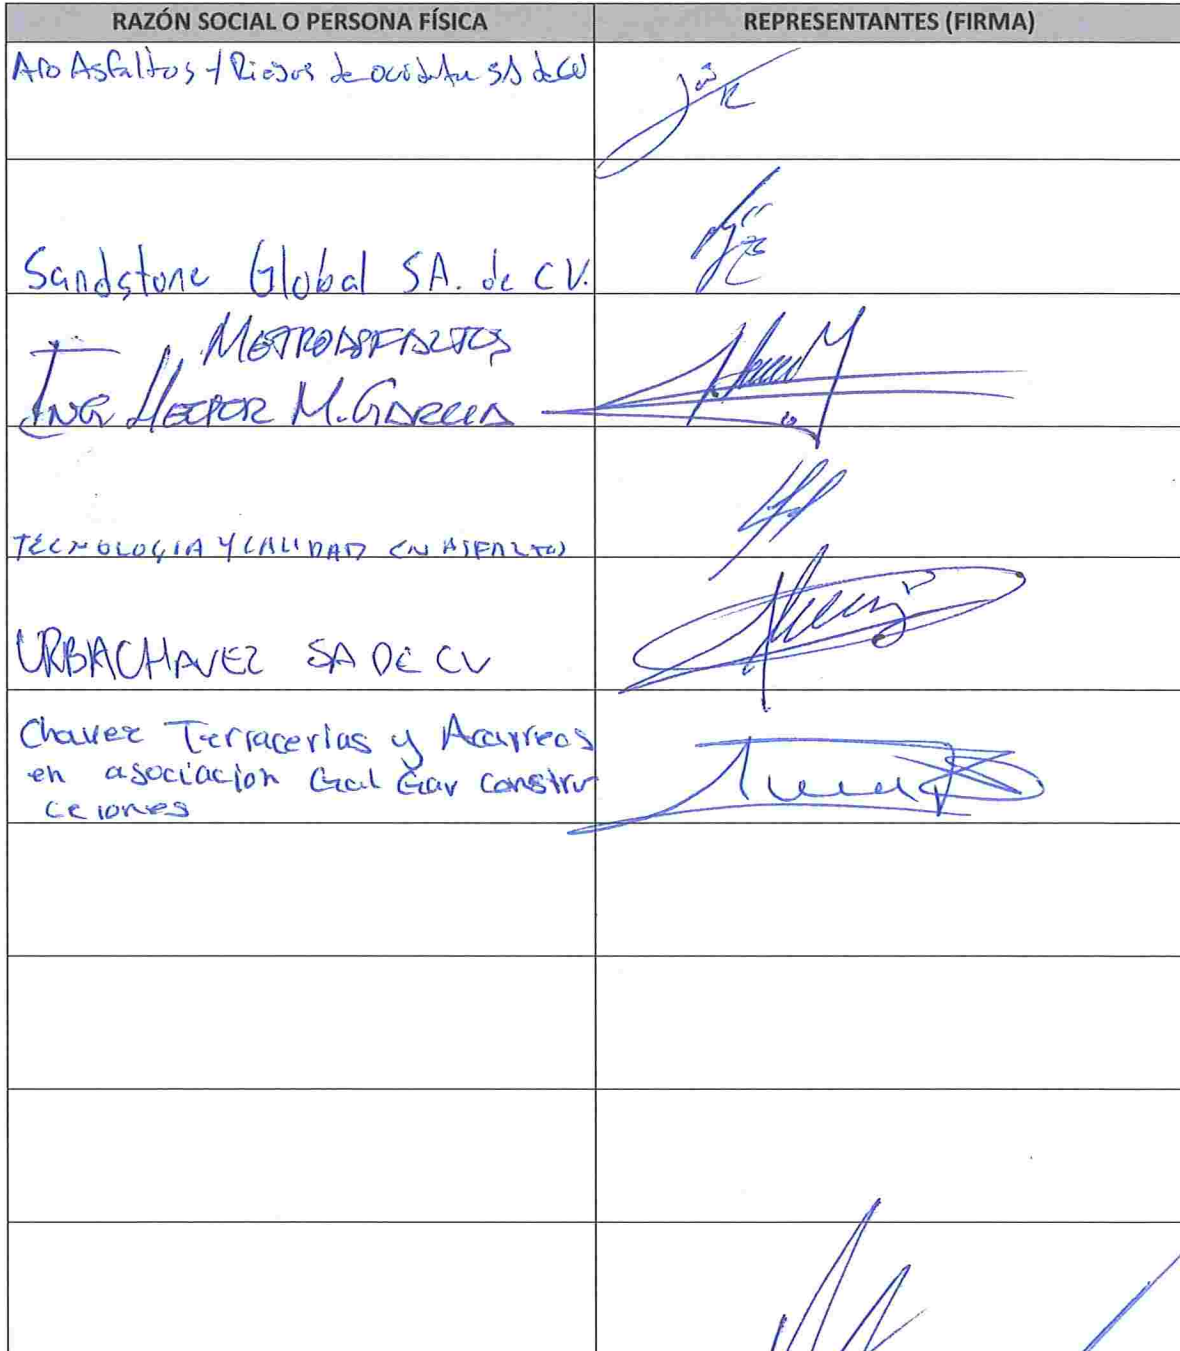 RAZÓN SOCIAL O PERSONA FÍSICA REPRESENTANTES (FIRMA)
Aro Asfaltos y Riegos de occidente SA de CV
Sandstone Global SA. de CV.
METROASFALTOS
ING HECTOR M. GARCIA
TECNOLOGIA Y CALIDAD EN ASFALTOS
URBACHAVEZ SA DE CV
Chavez Terracerias y Acarreos
en asociacion Gal Gar constru
cciones